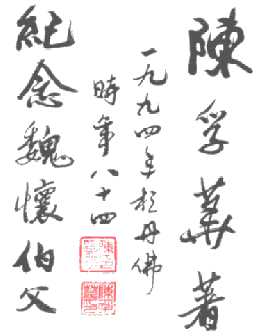 陳孚華著
一九九四年於丹佛
時年八十四
紀念魏懷伯父